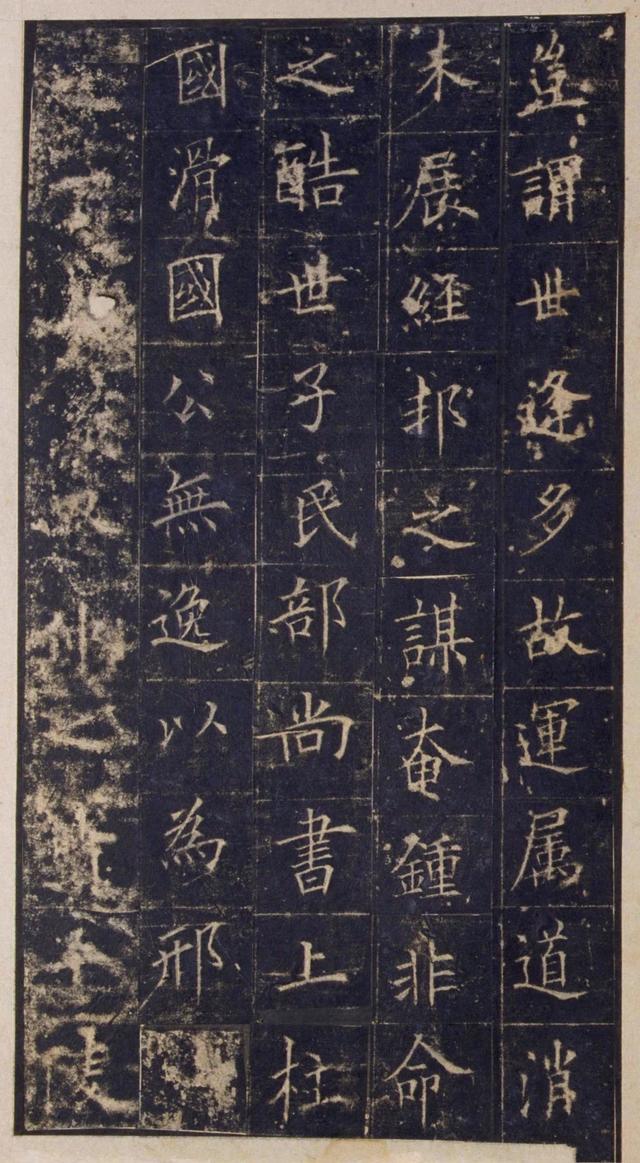 豈謂世逢多故運属道消
未展經邦之謀奄鍾非命
之酷世子民部尚書上柱
國滑國公無逸以為邢
之